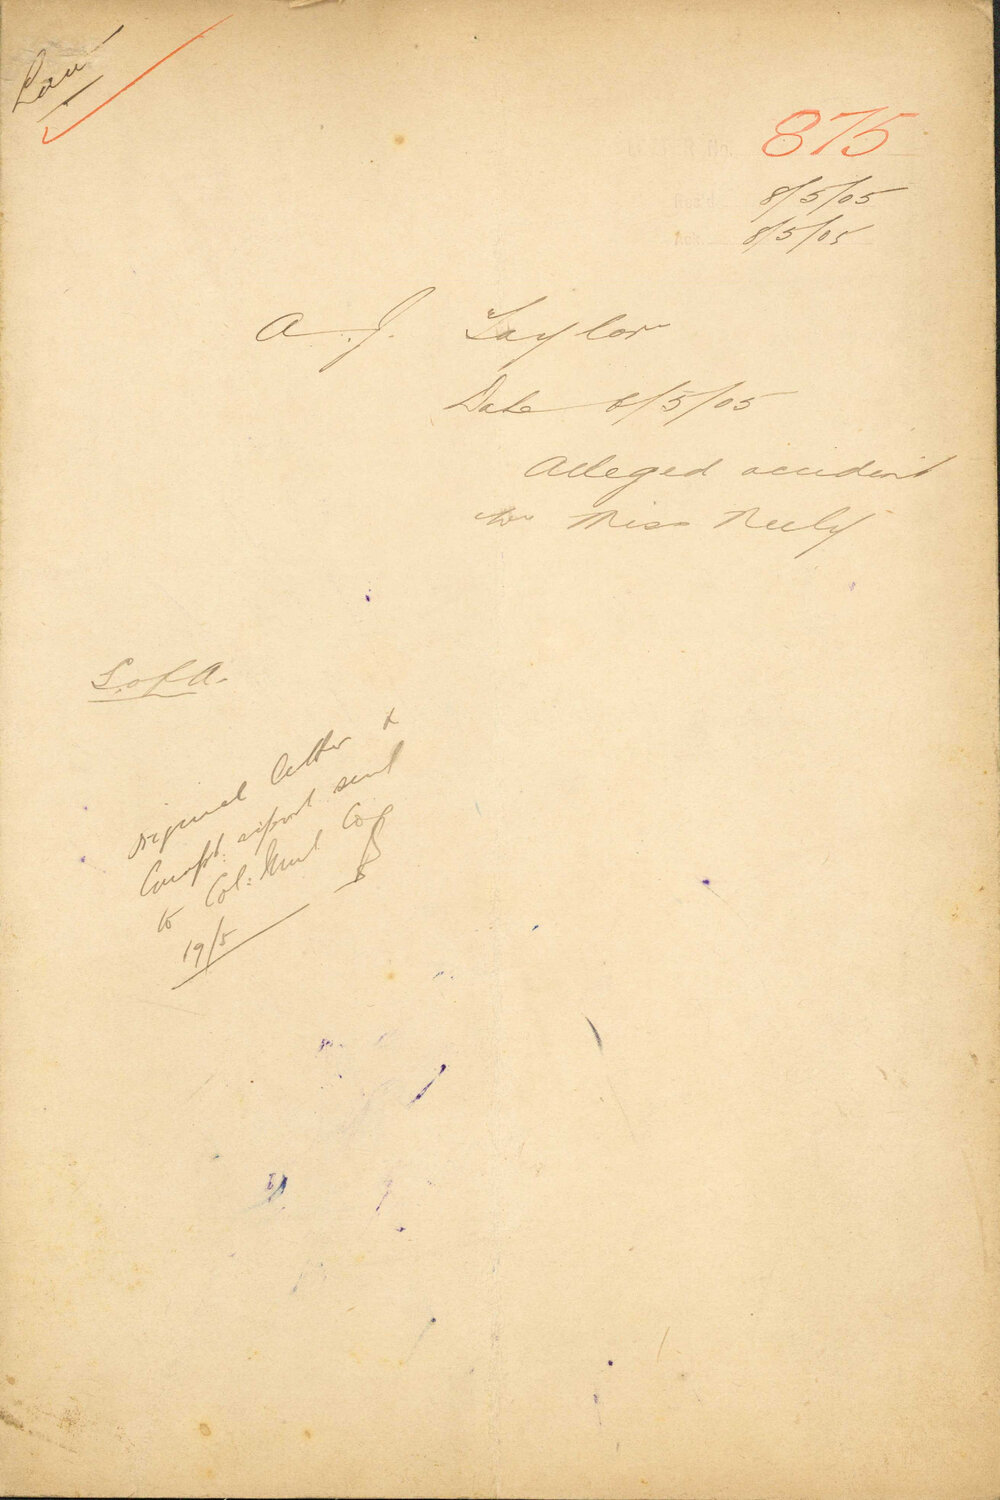 Law
875
8/5/05
8/5/05
A. J. Taylor
Date 6/5/05
Alleged accident
to Miss Neely
S. of A.
Original letter &
Compt. report sent
to Col: Mut Co
19/5